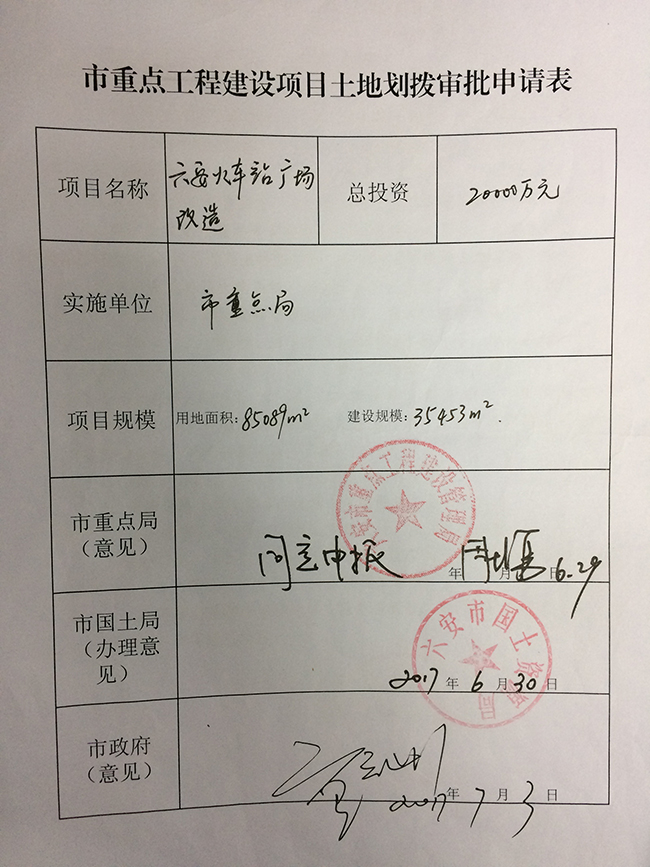 市重点工程建设项目土地划拨审批申请表
项目名称
六安火车站广场
改造
总投资
20000万元
实施单位
市重点局
项目规模
用地面积:85089m²
建设规模:35453m².
市重点局
(意见)
六安市重点工程建设管理局
同意申报
年 月 日
6.29
市国土局
(办理意
见)
六安市国土资源局
2017年6月30日
市政府
(意见)
2017年7月3日